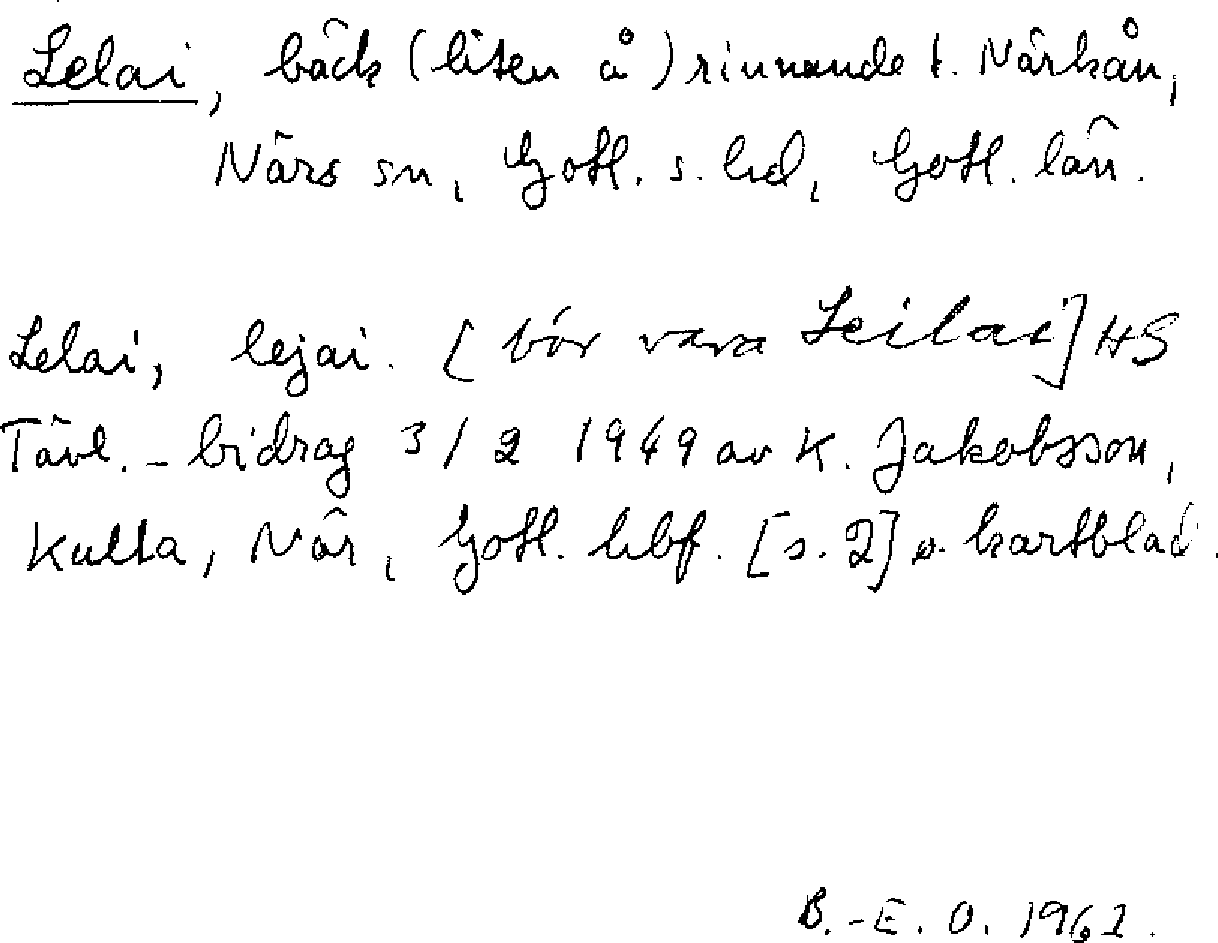 Lelai, bäck (liten å) rinnande t. Närkån,
Närs sn, Gotl. s. hd, Gotl. län.
Lelai, lejai. [bör vara Leilae] HS
Tävl. - bidrag 3/2 1949 av K. Jakobsson,
Kulla, När, Gotl. hbf. [s. 2] o. kartblad.
B.-E. O. 1961.